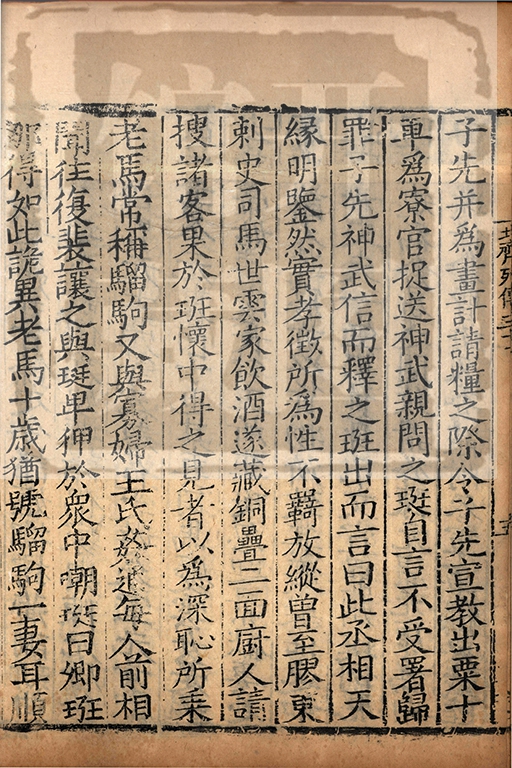 北齊列傳三十一
子先并爲畫計請糧之際令子先宣教出粟十
車爲寮官捉送神武親問之珽自言不受署歸
罪子先神武信而釋之珽出而言曰此丞相天
縁明鑒然實孝徵所爲性不羇放縱曽至膠東
刺史司馬世雲家飲酒遂藏銅疊二面廚人請
搜諸客果於珽懷中得之見者以爲深恥所乗
老馬常稱騮駒又與寡婦王氏姦通每人前相
聞往復裴讓之與珽早狎於衆中嘲珽曰卿珽
那得如此詭異老馬十歳猶號騮駒一妻耳順